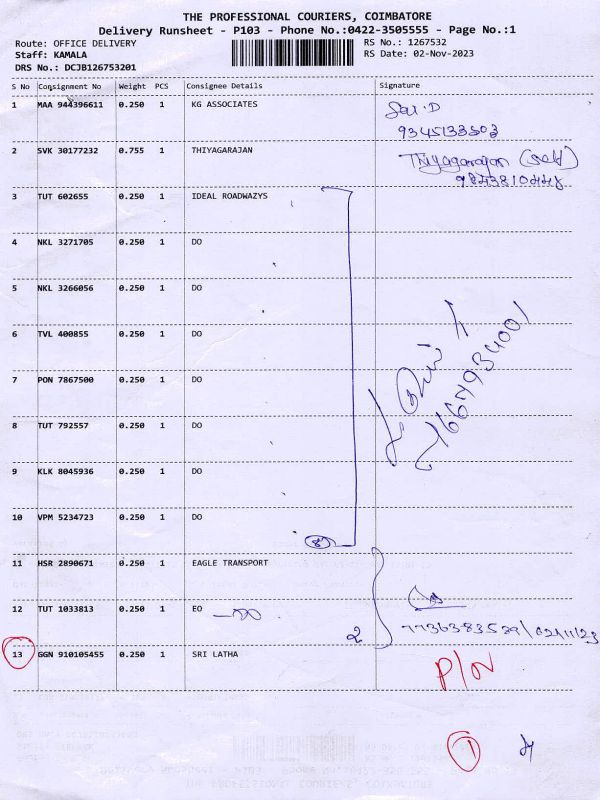 THE PROFESSIONAL COURIERS, COIMBATORE
Delivery Runsheet - P103 - Phone No.:0422-3505555 - Page No.:1
Route: OFFICE DELIVERY RS No.: 1267532
Staff: KAMALA RS Date: 02-Nov-2023
DRS No.: DCJB126753201
S No Consignment No Weight PCS Consignee Details Signature
1 MAA 944396611 0.250 1 KG ASSOCIATES
9345133503
2 SVK 30177232 0.755 1 THIYAGARAJAN Thiyagarajan (Self)
3 TUT 602655 0.250 1 IDEAL ROADWAZYS
4 NKL 3271705 0.250 1 DO
5 NKL 3266056 0.250 1 DO
6 TVL 400855 0.250 1 DO
7 PON 7867500 0.250 1 DO
8 TUT 792557 0.250 1 DO
9 KLK 8045936 0.250 1 DO
10 VPM 5234723 0.250 1 DO
8
11 HSR 2890671 0.250 1 EAGLE TRANSPORT
12 TUT 1033813 0.250 1 EO DO
2 7736383539/02/11/23
13 GGN 910105455 0.250 1 SRI LATHA
P/N
1